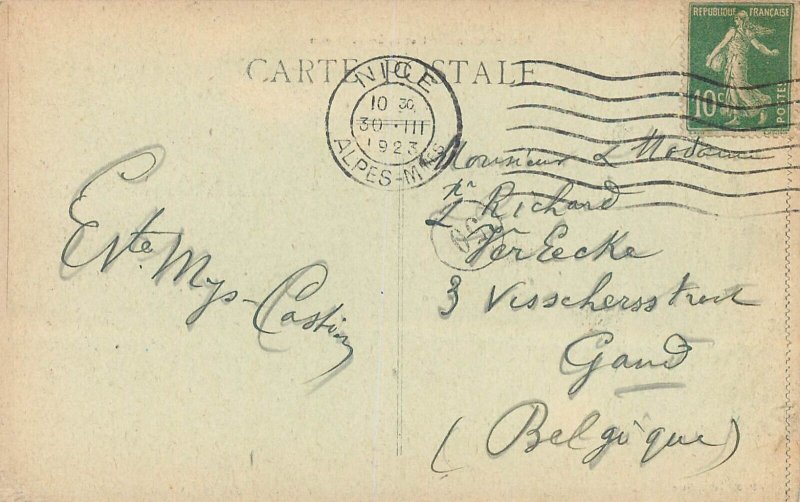 CARTE POSTALE
NICE
10 30
30 · III
1923
ALPES-MMES
REPUBLIQUE FRANÇAISE
10c
POSTES
Monsieur & Madame
Richard
VerEecke
3 Visschersstraat
Gand
(Belgique)
Cste Mys-